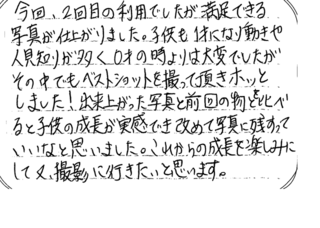 今回、2回目の利用でしたが満足できる
写真が仕上がりました。子供も1才になり動きや
人見知りが多く0才の時よりは大変でしたが
その中でもベストショットを撮って頂きホッと
しました！出来上がった写真と前回の物をくらべ
ると子供の成長が実感でき改めて写真に残すって
いいなと思いました。これからの成長を楽しみに
して又、撮影に行きたいと思います。